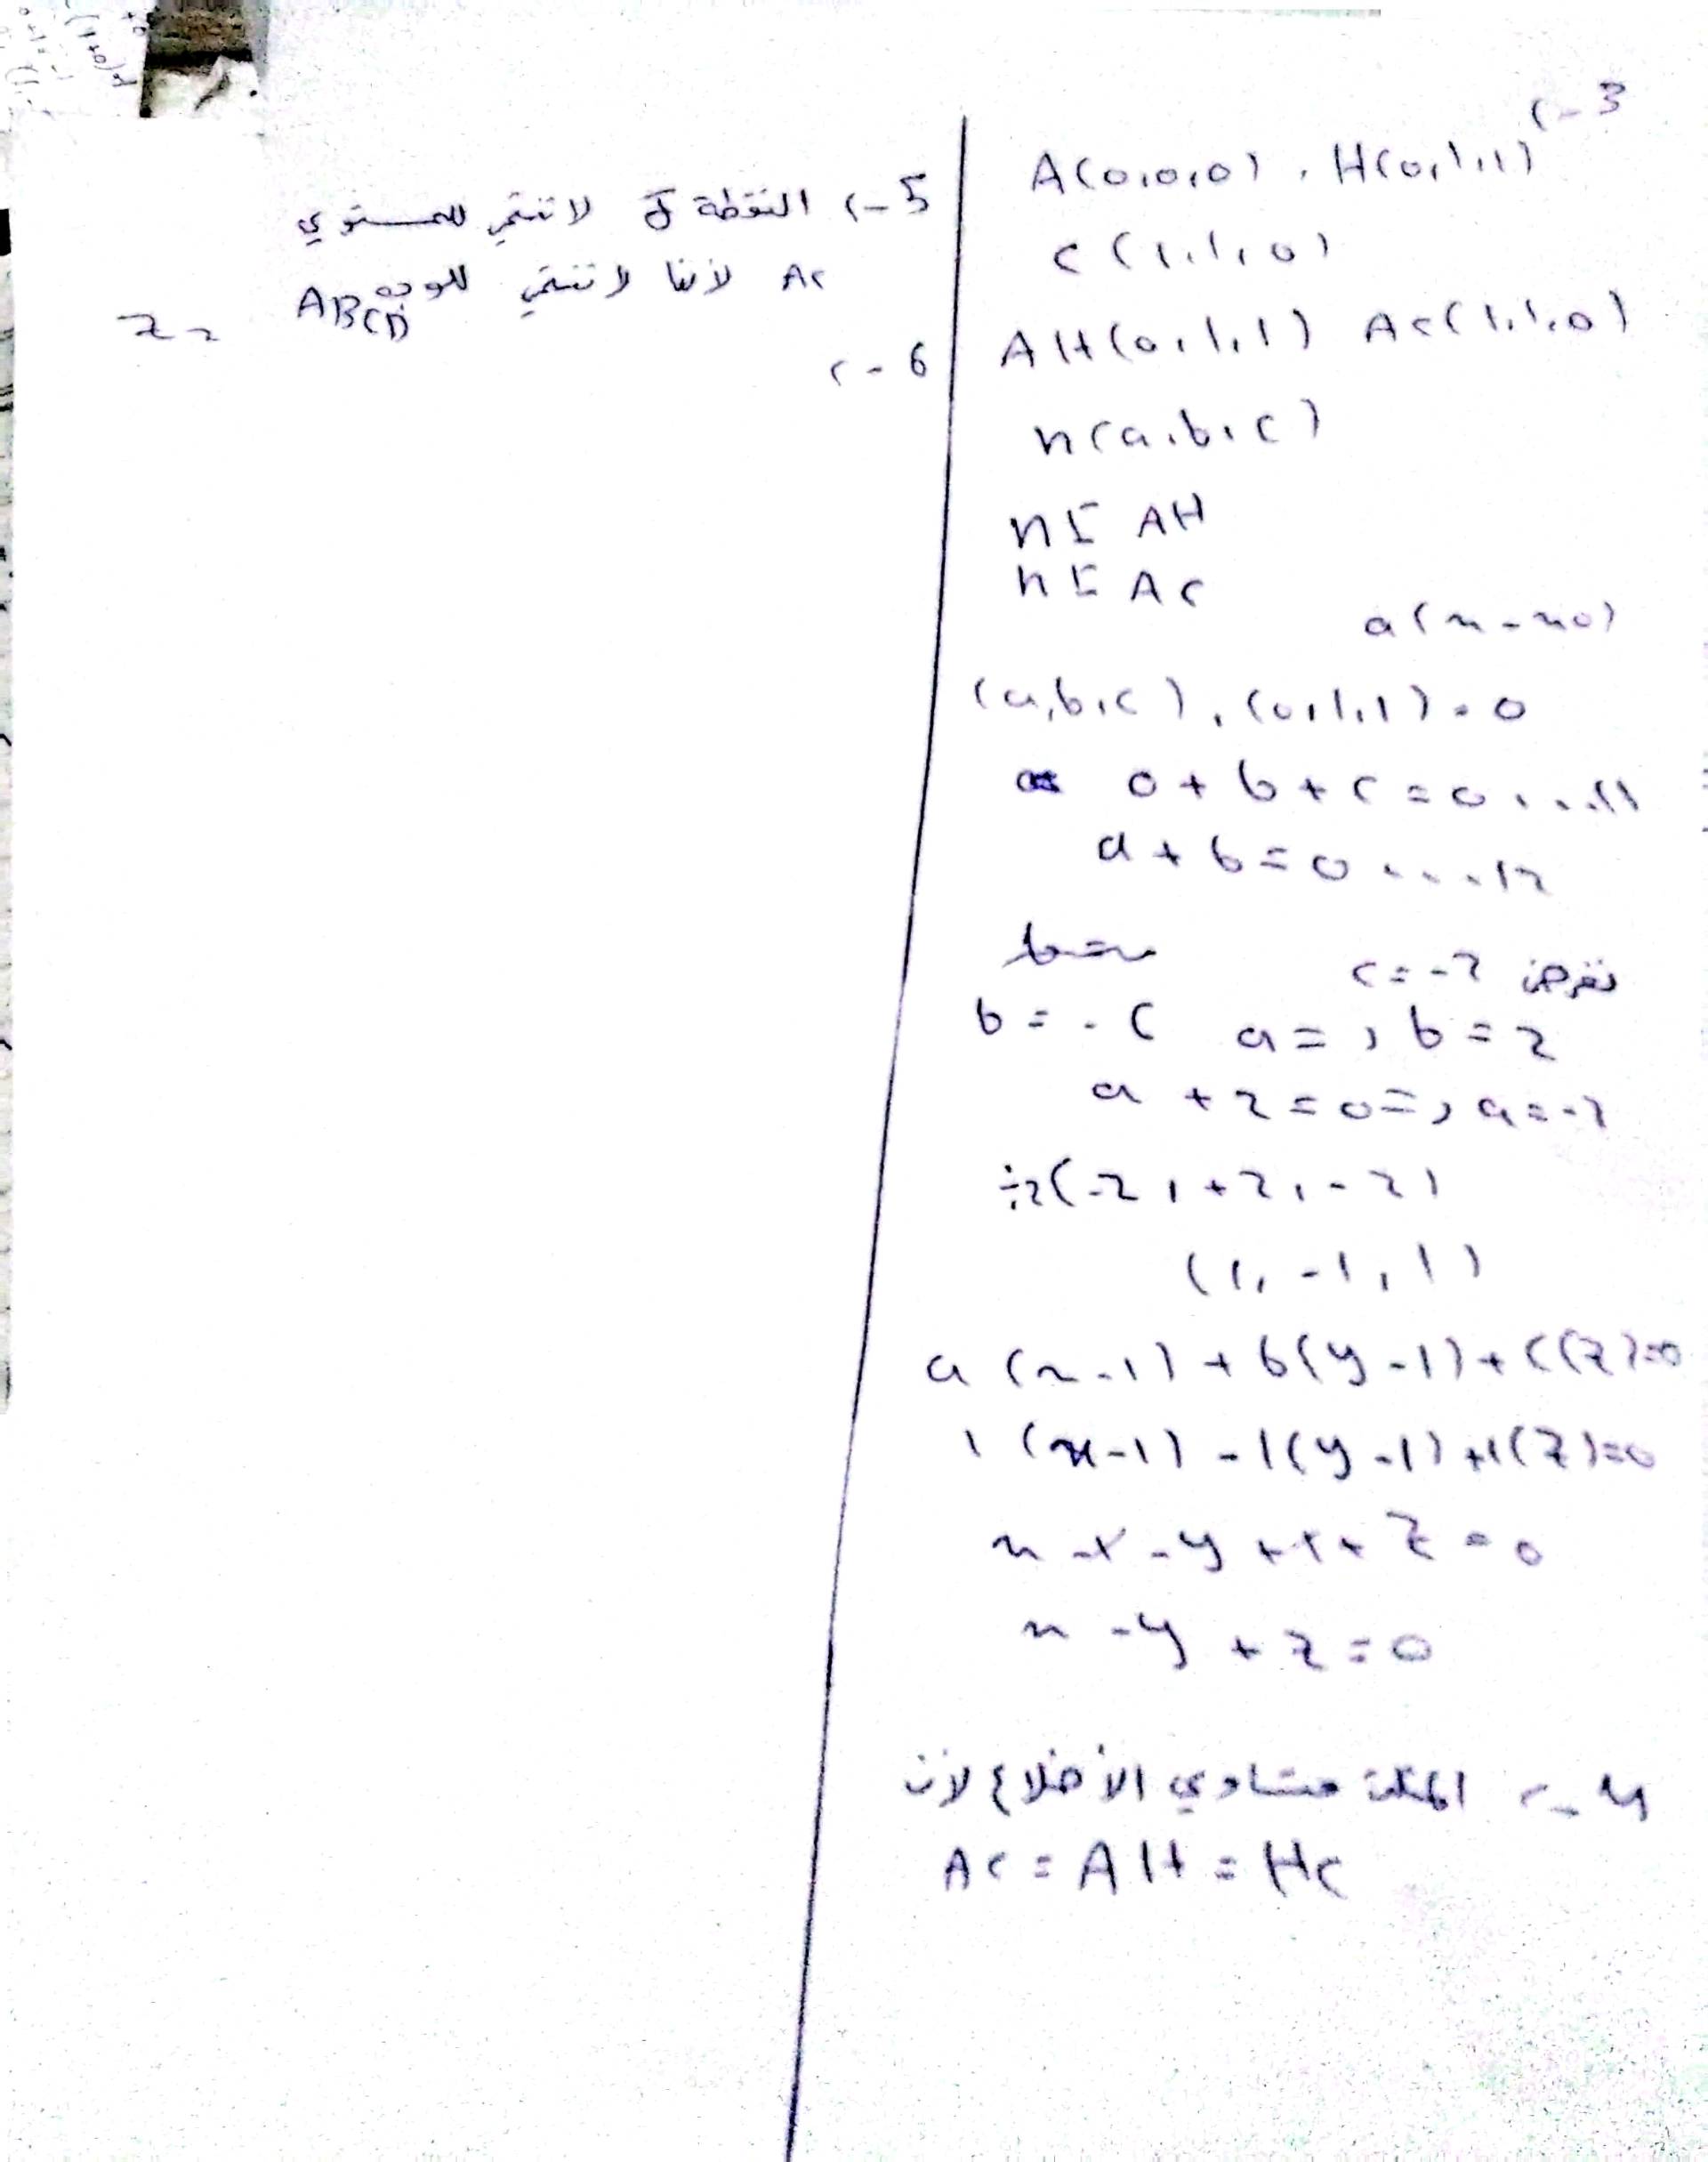 3 -
A(0,0,0) , H(0,1,1)
C(1,1,0)
AH(0,1,1) AC(1,1,0)
n(a,b,c)
n ⊥ AH
n ⊥ AC
a(x-x0)
(a,b,c) . (0,1,1) = 0
0 + b + c = 0 ....(1
a + b = 0 ....(2
نفرض c = -2
b = -c a = , b = 2
a + 2 = 0 => a = -2
÷2(-2 , +2 , -2)
(1, -1, 1)
a (x-1) + b(y-1) + c(z)=0
1 (x-1) -1(y-1) +1(z)=0
x -1 -y +1 + z = 0
x -y + z = 0
4 - المثلث متساوي الأضلاع لأن
AC = AH = HC
5 - النقطة لا تنتمي للمستوي
AC لأنها لا تنتمي للوجه ABCD
6 -